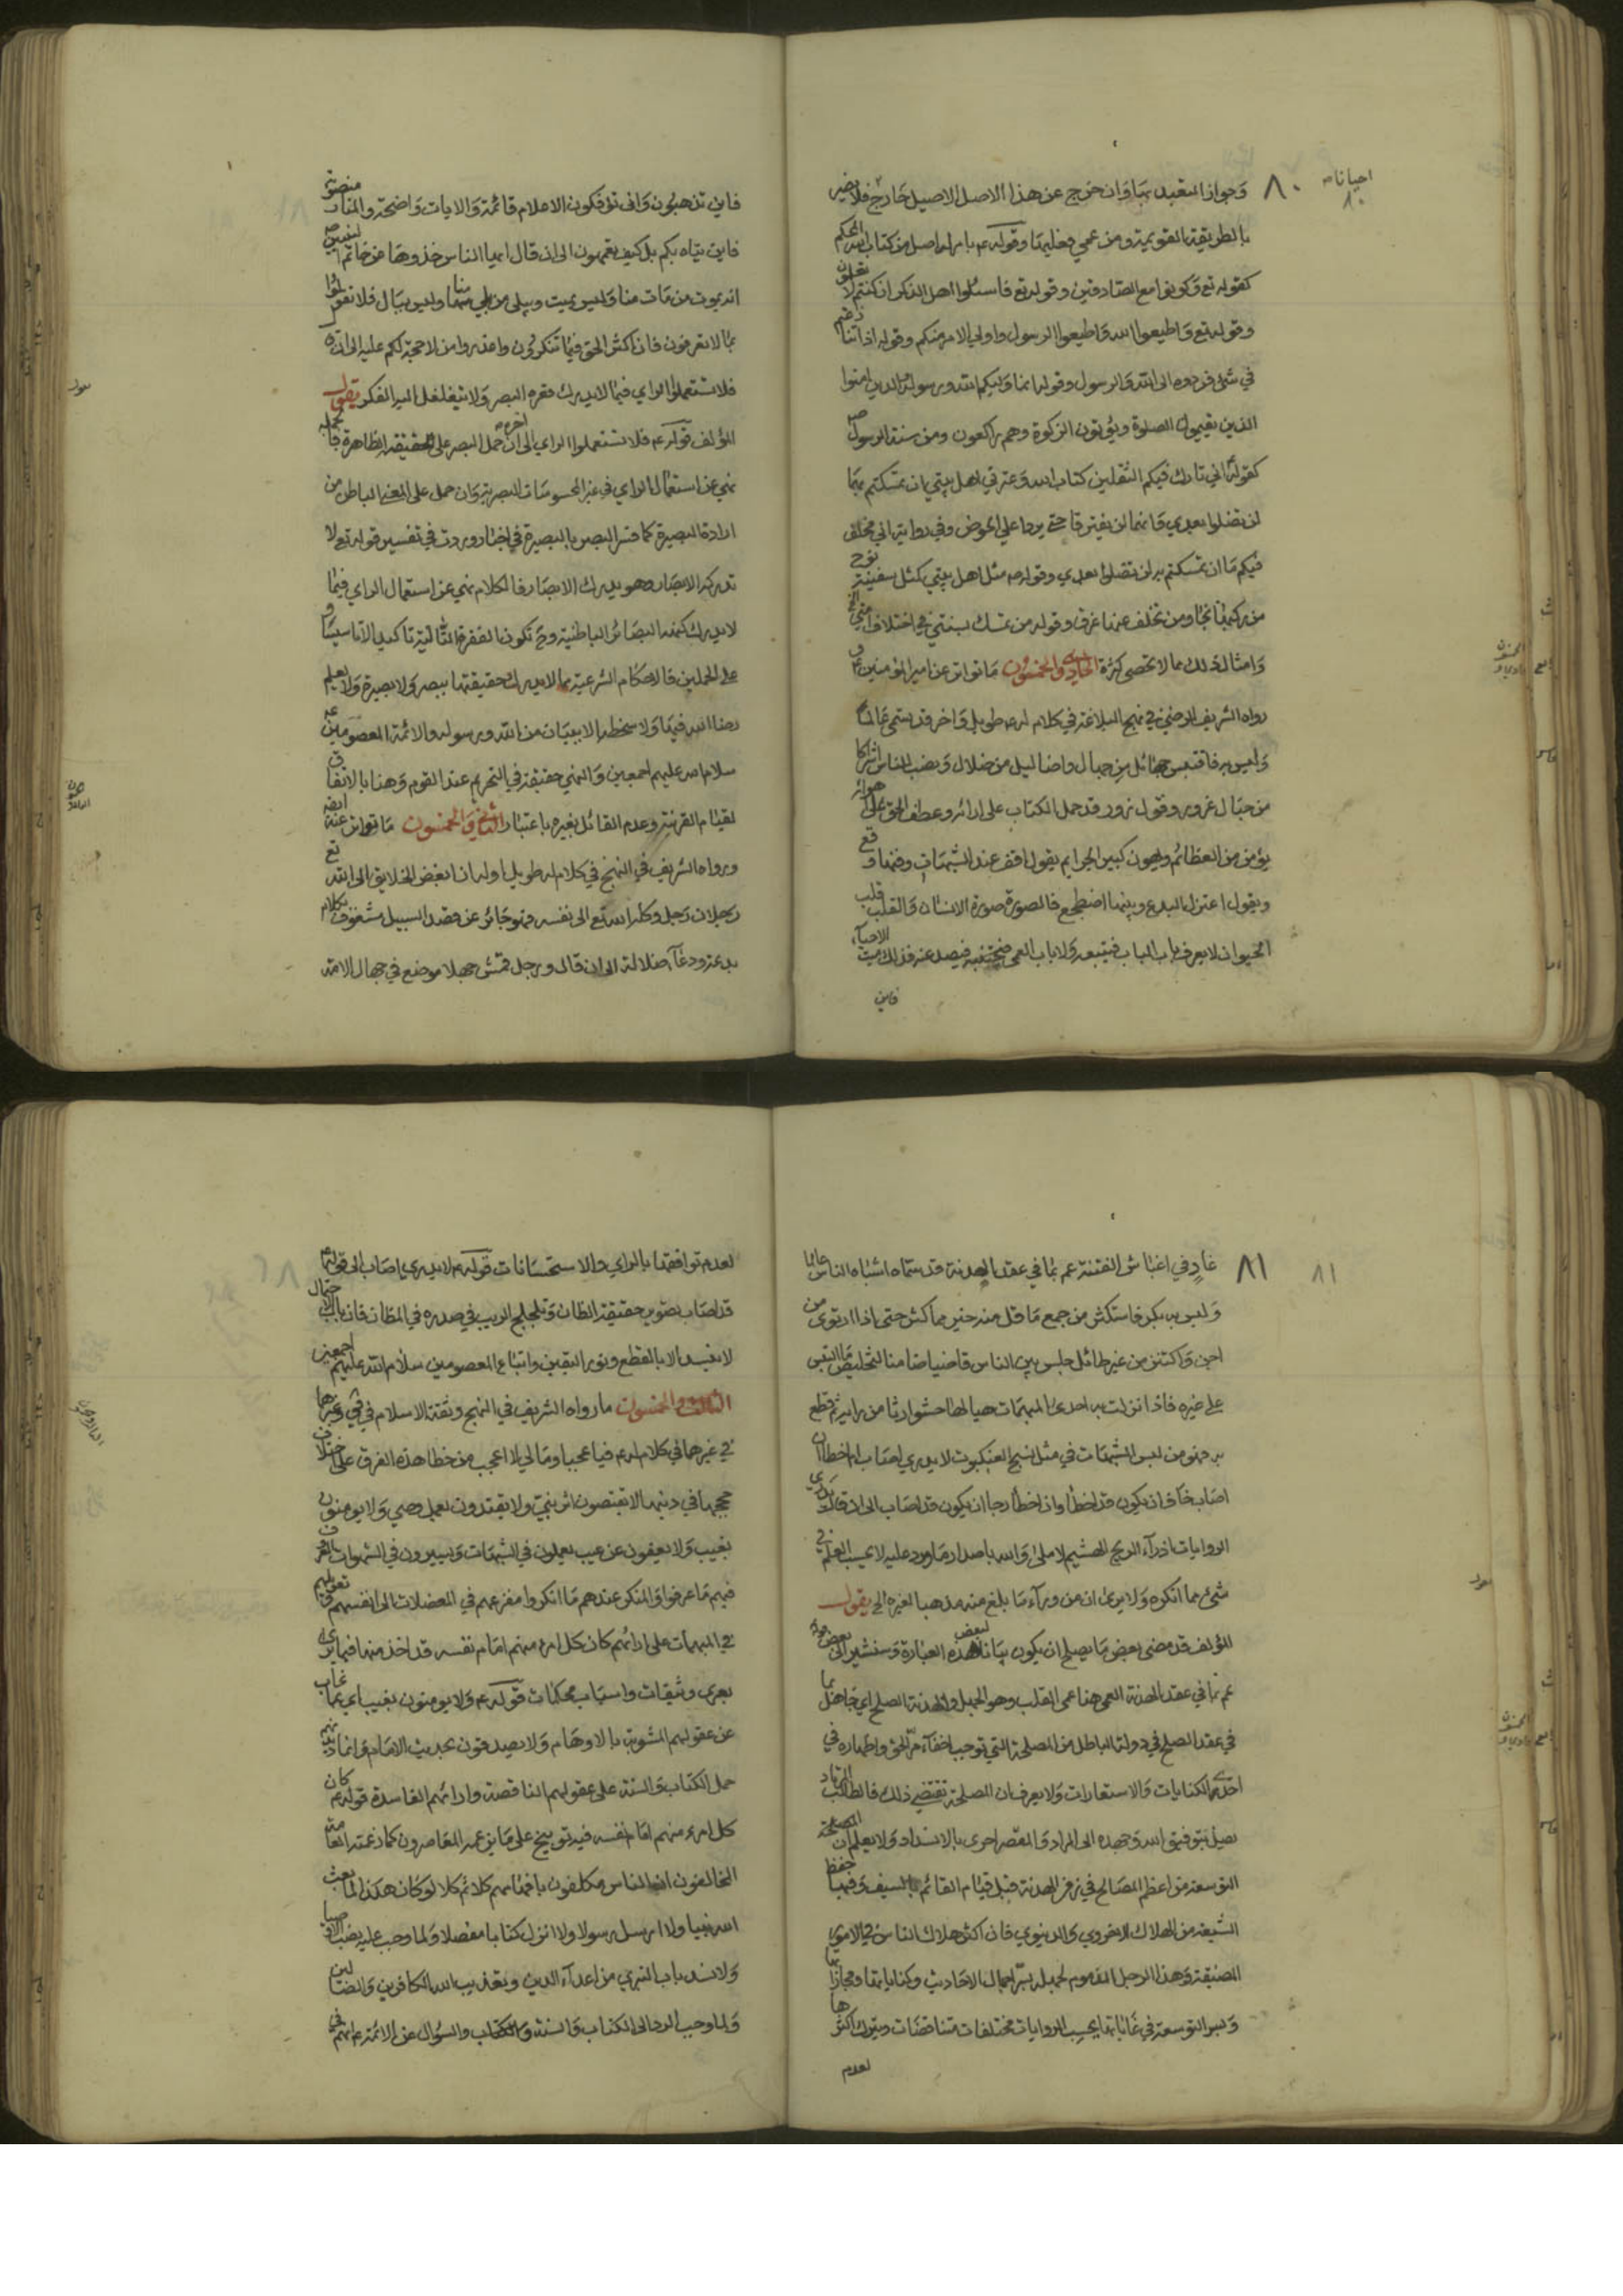 احيانا
٨٠
٨٠
وجواز التعبد بها وان خرج عن هذا الاصل الاصيل خارج فلا يضير
بالطريقة القويمة ومن عمي فعليها وقوله ع بابراد اصل من كتاب الله المحكم
كقوله تع وكونوا مع الصادقين وقوله تع فاسئلوا اهل الذكر ان كنتم لا تعلمون
وقوله تع واطيعوا الله واطيعوا الرسول واولي الامر منكم وقوله اذا تنازعتم
في شئ فردوه الى الله والرسول وقوله انما وليكم الله ورسوله والذين امنوا
الذين يقيمون الصلوة ويؤتون الزكوة وهم راكعون ومن سنة الرسول ص
كقوله اني تارك فيكم الثقلين كتاب الله وعترتي اهل بيتي ان تمسكتم بهما
لن تضلوا بعدي فانهما لن يفترقا حتى يردا علي الحوض وفي رواية اني مخلف
فيكم ما ان تمسكتم به لن تضلوا بعدي وقوله ص مثل اهل بيتي كمثل سفينة نوح
من ركبها نجا ومن تخلف عنها غرق وقوله من تمسك بسنتي في اختلاف امتي الخ
وامثال ذلك مما لا تحصى كثرة الحادي والخمسون ما تواتر عن امير المؤمنين ع و
رواه الشريف الرضي في نهج البلاغة في كلام له ع طويل واخر قد يسمى عالما
وليس به فاقتبس جهائل من جهال واضاليل من ضلال ونصب للناس اشراكا
من حبال غرور وقول زور قد حمل الكتاب على ارائه وعطف الحق على اهوائه
يؤمن من العظائم ويهون كبير الجرايم يقول اقف عند الشبهات وفيها وقع
ويقول اعتزل البدع وبينها اضطجع فالصورة صورة الانسان والقلب قلب
الحيوان لا يعرف باب الهدى فيتبعه ولا باب العمى فيجتنبه فيصد عنه فذلك ميت الاحياء
فاين
فاين تذهبون وانى تؤفكون الاعلام قائمة والايات واضحة والمنار منصوبة
فاين يتاه بكم بل كيف تعمهون الى ان قال ايها الناس خذوها من خاتم النبيين ص
انه يموت من مات منا وليس بميت ويبلى من بلي منا وليس ببال فلا تقولوا
بما لا تعرفون فان اكثر الحق فيما تنكرون واعذروا من لا حجة لكم عليه الى ان قال
فلا تستعملوا الراي فيما لا يدرك قعره البصر ولا يتغلغل اليه الفكر يقول
المؤلف قوله ع فلا تستعملوا الراي الى اخره ان حمل البصر على الحقيقة الظاهرة فالجملة
نهي عن استعمال الراي في غير المحسوسات البصرية وان حمل على المعنى الباطن من
ارادة البصيرة كما فسر البصر بالبصيرة في اخبار وردت في تفسير قوله تع لا
تدركه الابصار وهو يدرك الابصار فالكلام نهي عن استعمال الراي فيما
لا يدرك كنهه البصائر الباطنية وح تكون الفقرة الثانية تاكيدا لا تاسيسا و
على الحملين فالاحكام الشرعية مما لا يدرك حقيقتها ببصر ولا بصيرة ولا يعلم
رضا الله فيها ولا سخطه الا ببيان من الله ورسوله والائمة المعصومين ع
سلام الله عليهم اجمعين والنهي حقيقة في التحريم عند القوم وهنا بالاتفاق
لقيام القرينة وعدم القائل بغيره باعتبار الثاني والخمسون ما تواتر عنه ايضا
ورواه الشريف في النهج في كلام له طويل اوله ان ابغض الخلايق الى الله تع
رجلان رجل وكله الله تع الى نفسه فهو جائر عن قصد السبيل مشغوف بكلام
بدعة ودعاء ضلالة الى ان قال ورجل قمش جهلا موضع في جهال الامة
٨١
٨١
غار في اغباش الفتنة عم بما في عقد الهدنة قد سماه اشباه الناس عالما
وليس به بكر فاستكثر من جمع ما قل منه خير مما كثر حتى اذا ارتوى من
اجن واكتنز من غير طائل جلس بين الناس قاضيا ضامنا لتخليص ما التبس
على غيره فاذا نزلت به احدى المبهمات هيا لها حشوا رثا من رايه ثم قطع
به فهو من لبس الشبهات في مثل نسج العنكبوت لا يدري اصاب ام اخطا ان
اصاب خاف ان يكون قد اخطأ وان اخطأ رجا ان يكون قد اصاب الى ان قال يذري
الروايات اذراء الريح الهشيم لا ملئ والله باصدار ما ورد عليه لا يحسب العلم في
شئ مما انكره ولا يرى ان من وراء ما بلغ منه مذهبا لغيره الخ يقول
المؤلف قد مضى بعض ما يصلح ان يكون بيانا لبعض هذه العبارة وسنشير الى بعض قوله
عم بما في عقد الهدنة العمى هنا عمى القلب وهو الجهل والهدنة الصلح اي جاهل بما
في عقد الصلح في دولة الباطل من المصلحة التي توجب اخفاء مر الحق واظهاره في
احدى الكنايات والاستعارات ولا يعرف ان المصلحة تقتضي ذلك فالطالب المرتاد
يصل بتوفيق الله وجهده الى المراد والمقصر احرى بالانسداد ولا يعلم ان المصلحة
التوسعة من اعظم المصالح في زمن الهدنة قبل قيام القائم بالسيف وفيها حفظ
الشيعة من الهلاك الاخروي والدنيوي فان اكثر هلاك الناس في الامور
الضيقة وهذا الرجل المذموم لجهله بسر اجمال الاحاديث وكناياتها ومجازاتها
وسر التوسعة في غاياتها يحسب الروايات مختلفات متناقضات ويترك اكثرها
لعدم
لعدم توافقها بالراي والاستحسانات قوله ع لا يدري اصاب الى قوله ع
قد اصاب تصوير حقيقة الظان وتلجلج الريب في صدره في المظان فان باب الاحتمال
لا ينسد الا بالقطع ونور اليقين واتباع المعصومين سلام الله عليهم اجمعين
الثالث والخمسون ما رواه الشريف في النهج وثقة الاسلام في في وغيرهما
في غيرهما في كلام له ع فيا عجبا وما لي لا اعجب من خطا هذه الفرق على اختلاف
حججها في دينها لا يقتصون اثر نبي ولا يقتدون بعمل وصي ولا يومنون
بغيب ولا يعفون عن عيب يعملون في الشبهات ويسيرون في الشهوات المعروف
فيهم ما عرفوا والمنكر عندهم ما انكروا مفزعهم في المعضلات الى انفسهم وتعويلهم
في المبهمات على ارائهم كان كل امرء منهم امام نفسه قد اخذ منها فيما يرى
بعرى وثيقات واسباب محكمات قوله ع ولا يومنون بغيب اي بما غاب
عن عقولهم المشوبة بالاوهام ولا يصدقون بحديث الامام وانما دينهم
حمل الكتاب والسنة على عقولهم الناقصة وارائهم الفاسدة قوله ع كان
كل امرء منهم امام نفسه فيه توبيخ على ما يزعمه المعاصرون كما زعمته العامة
المخالفون ان الناس مكلفون بافهامهم كلا ثم كلا لو كان هكذا لما بعث
الله نبيا ولا ارسل رسولا ولا انزل كتابا مفصلا ولما وجب عليه نصب الاوصيا
ولانسد باب التبري من اعداء الدين وتعذيب الله الكافرين والضالين
ولما وجب الرد الى الكتاب والسنة والسؤال عن الائمة ع انهم في